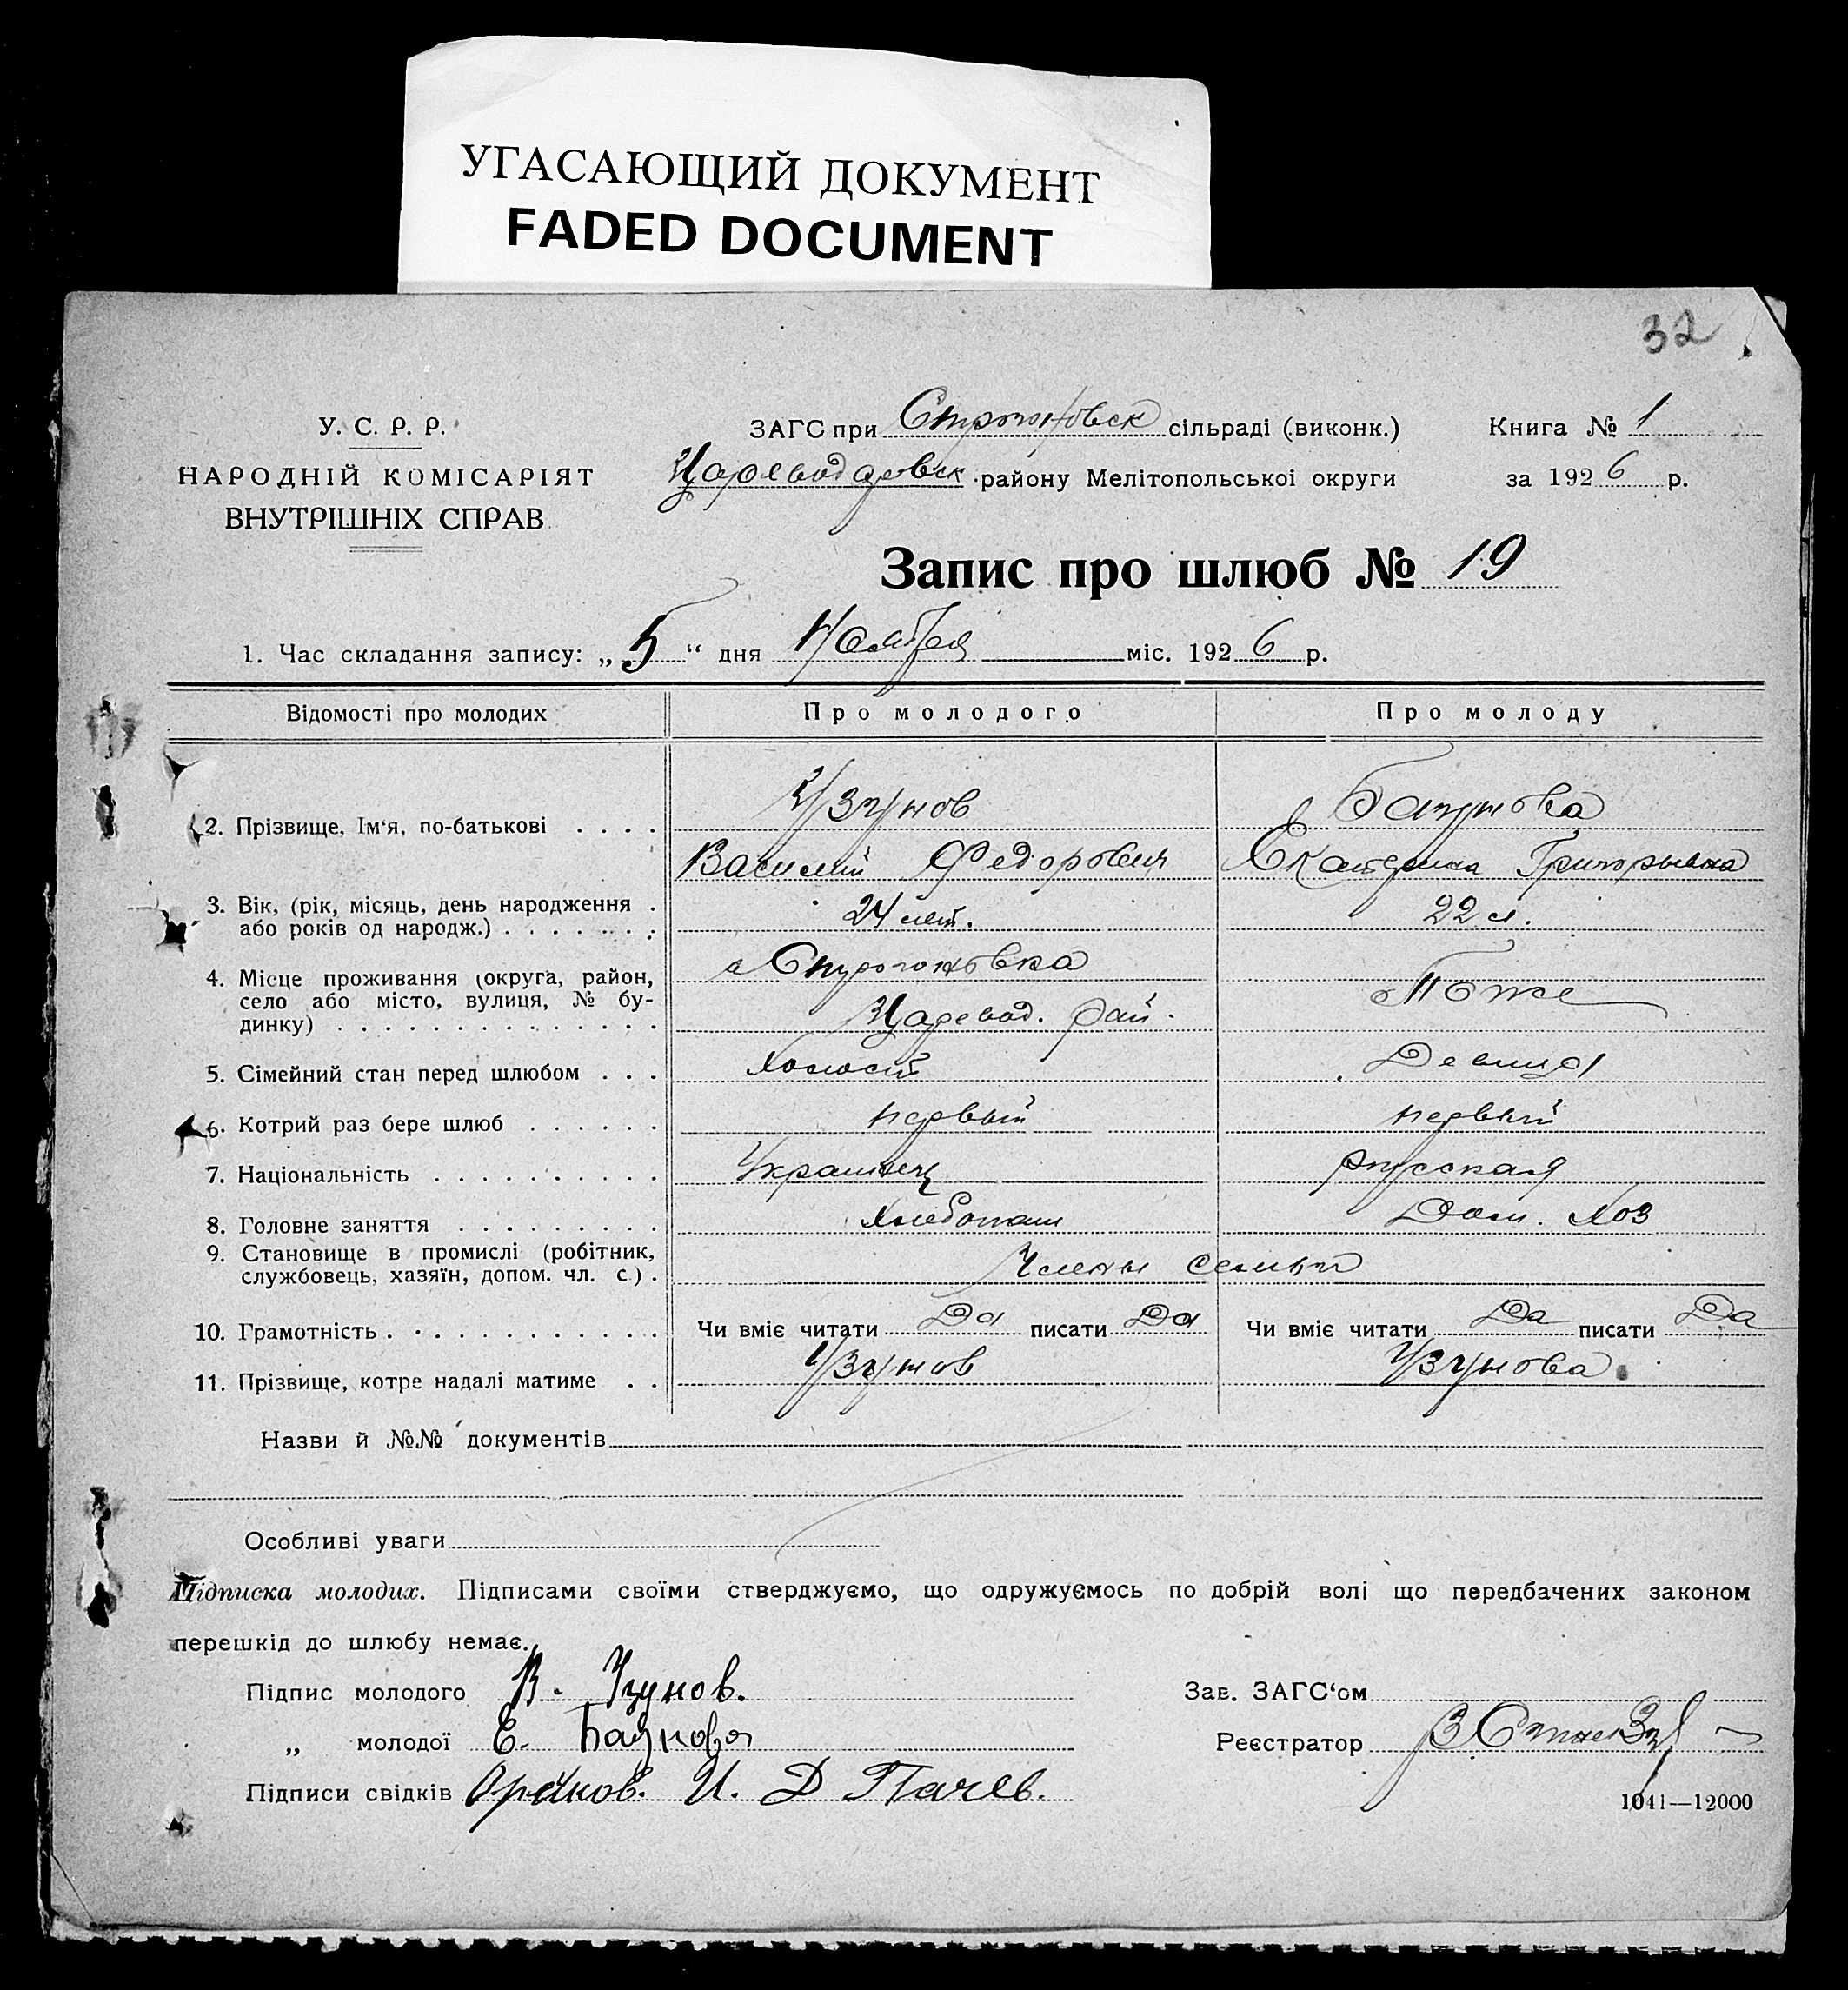 УГАСАЮЩИЙ ДОКУМЕНТ
FADED DOCUMENT
32
У. С. Р. Р.
НАРОДНІЙ КОМІСАРІЯТ
ВНУТРІШНІХ СПРАВ
ЗАГС при Строгоновск сільраді (виконк.)
Цареводаровск району Мелітопольської округи
Книга № 1
за 1926 р.
Запис про шлюб № 19
1. Час складання запису: „5“ дня Ноября міс. 1926 р.
Відомості про молодих Про молодого Про молоду
2. Прізвище, Ім'я, по-батькові . . . . Узунов Баунова
Василий Федорович Екатерина Григорьевна
3. Вік, (рік, місяць, день народження . або років од народж.) . . . . . . . 24 лет. 22 л.
4. Місце проживання (округа, район, село або місто, вулиця, № будинку) . . . . . . . . . . . . . . с Строгоновка
Царевод. рай. Тоже
5. Сімейний стан перед шлюбом . . . Холост Девица
6. Котрий раз бере шлюб . . . . . . первый первый
7. Національність . . . . . . . . . . Украинец русская
8. Головне заняття . . . . . . . . . Хлебопаш Дом. Хоз
9. Становище в промислі (робітник, службовець, хазяїн, допом. чл. с.) . Члены семьи
10. Грамотність . . . . . . . . . . . . Чи вміє читати Да писати Да Чи вміє читати Да писати Да
11. Прізвище, котре надалі матиме . . Узунов Узунова
Назви й №№ документів
Особливі уваги
Підписка молодих. Підписами своїми стверджуємо, що одружуємось по добрій волі що передбачених законом
перешкід до шлюбу немає.
Підпис молодого В. Узунов.
„ молодої Е. Баунова
Підписи свідків И. Д Пачев.
Зав. ЗАГС'ом
Реєстратор
1041—12000